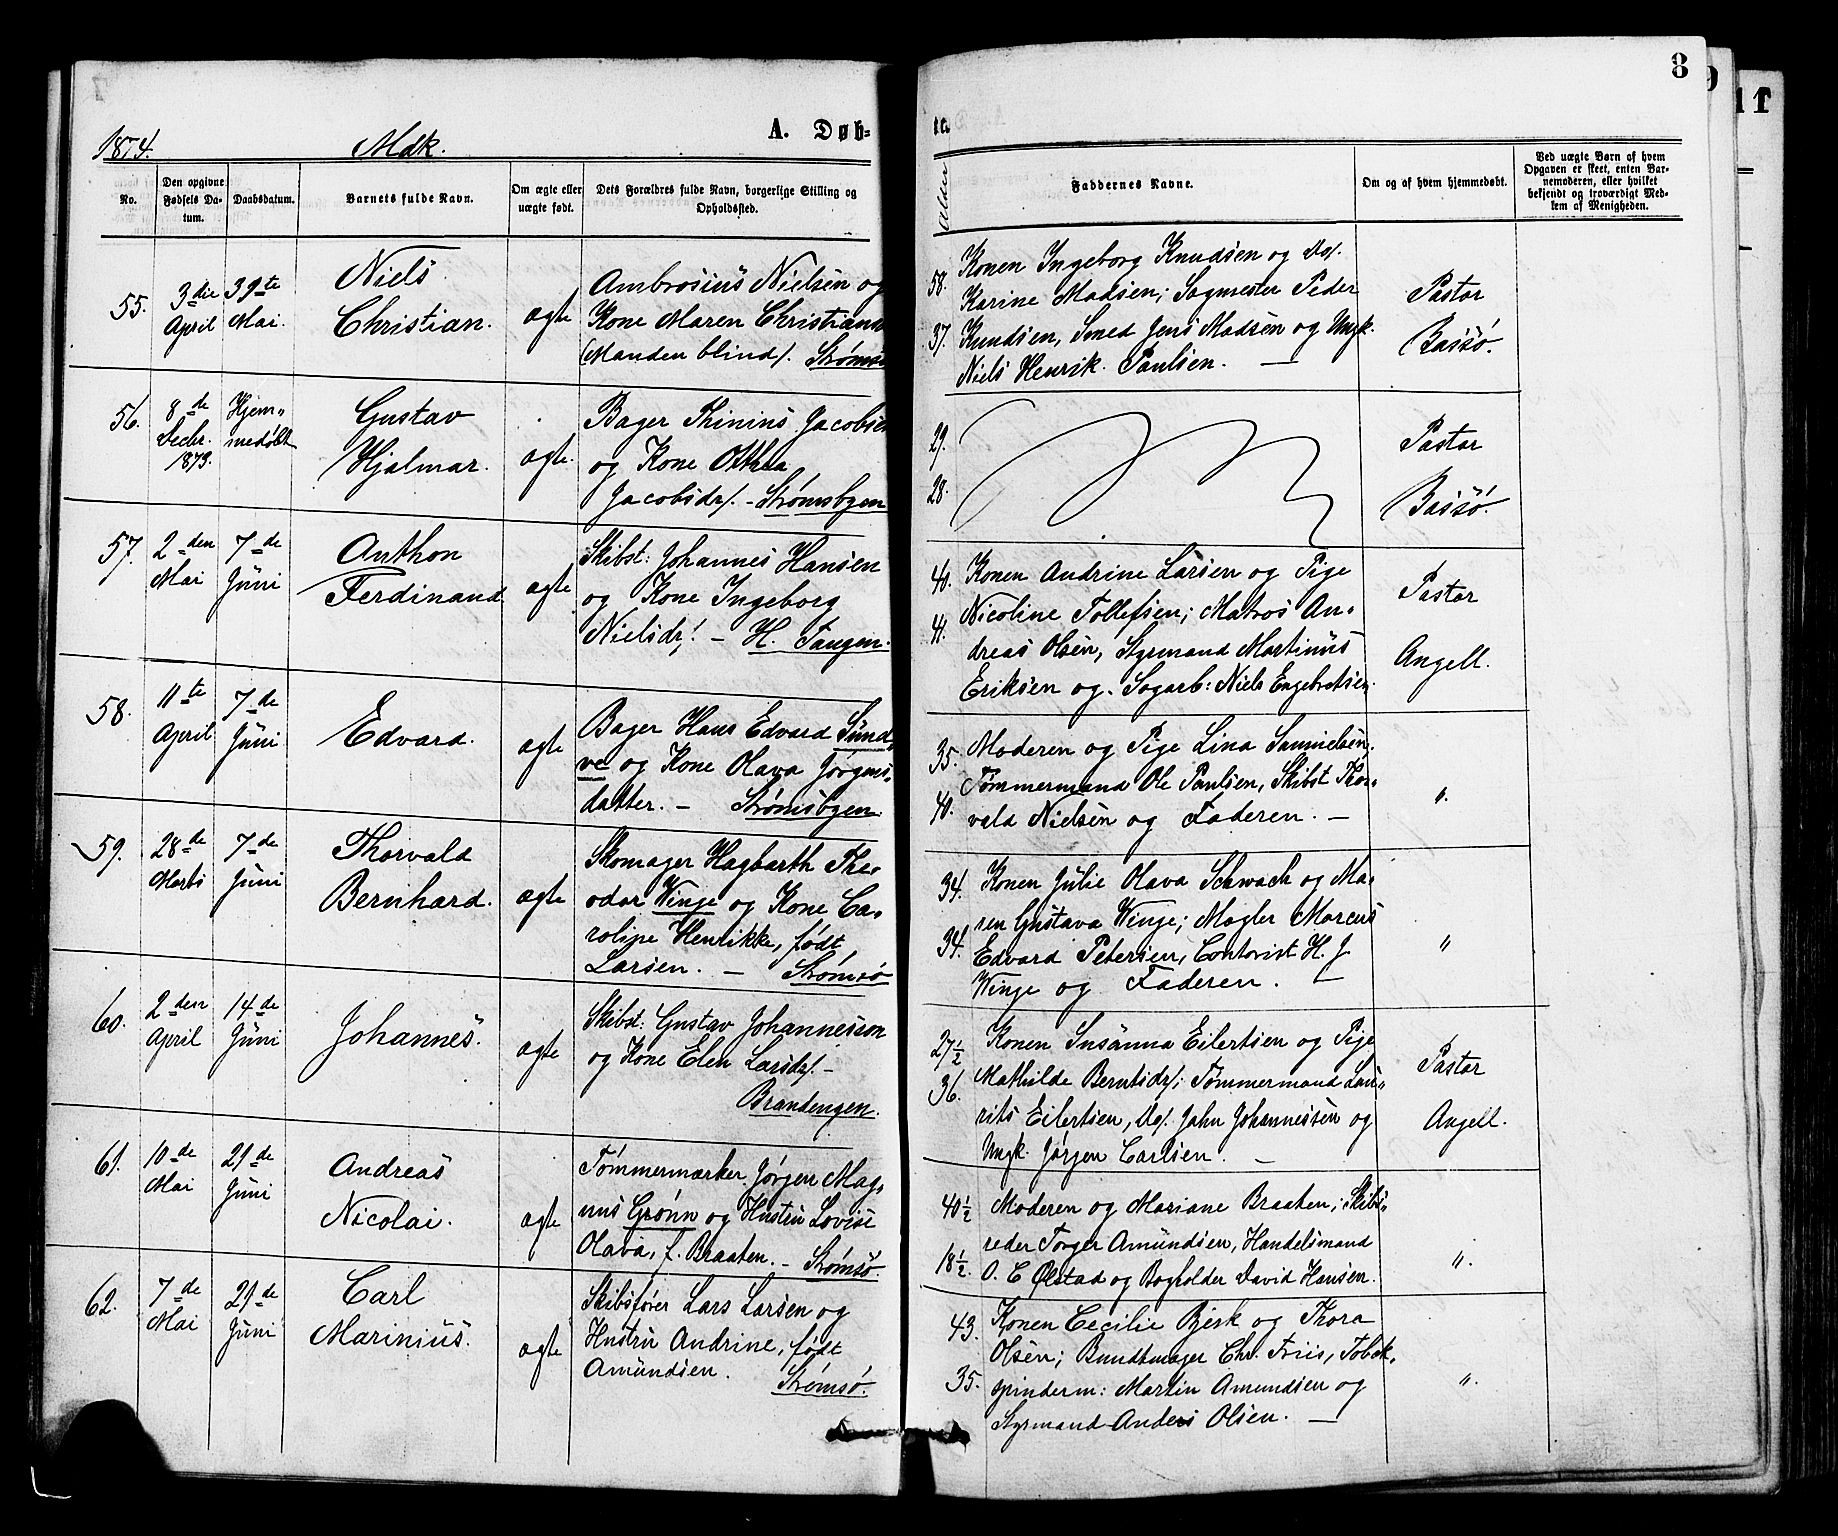 8
9
11
1874.
Mdk.
A. Døb-
te
No.
Den opgivne Fødsels Datum.
Daabsdatum.
Barnets fulde Navn.
Om ægte eller uægte født.
Dets Forældres fulde Navn, borgerlige Stilling og Opholdssted.
Alder
Faddernes Navne.
Om og af hvem hjemmedøbt.
Ved uægte Børn af hvem Opgaven er skeet, enten Barnemoderen, eller hvilket bekjendt og troværdigt Medlem af Menigheden.
55.
3die April
Mai.
Niels
Christian.
ægte
Ambrosius Nielsen og
Kone Maren Christians
(Manden blind). Strømsø
58.
37.
Konen Ingeborg Knudsen og Do.
Karine Madsen; Sagmester Peder
Knudsen, Smed Jens Madsen og Ungk.
Niels Henrik Paulsen. —
Pastor
Bassø.
56.
8de
Decbr.
1873.
Hjem-
medøbt
Gustav
Hjalmar.
ægte.
Bager Thinius Jacobsen
og Kone Otthea
Jacobsdr. - Strømsbgen
29.
28.
Pastor
Bassø.
57.
2den
Mai
7de
Juni
Anthon
Ferdinand
ægte
Skibst: Johannes Hansen
og Kone Ingeborg
Nielsdr! - H. Tangen.
41.
Konen Andrine Larsen og Pige
Nicoline Tollefsen; Matros An-
dreas Olsen, Styrmand Martinus
Eriksen og Sagarb: Niels Engebretsen.
Pastor
Angell.
58.
11te
April
7de
Juni
Edvard.
ægte
Bager Hans Edvard Sund-
ve og Kone Olava Jørgens-
datter. - Strømsbgen.
35.
40.
Moderen og Pige Lina Samuelsen.
Tømmermand Ole Paulsen, Skibst Thor-
vald Nielsen og Faderen. —
".
59.
28de
Marts
7de
Juni
Thorvald
Bernhard.
ægte
Skomager Hagbarth The-
odor Winge og Kone Ca-
roline Henrikke, født
Larsen. - Strømsø
34.
34.
Konen Julie Olava Schwach og Ma-
ren Gustava Winge; Mægler Marcus
Edvard Petersen, Contorist H. J.
Winge og Faderen. —
"
60.
2den
April
14de
Juni
Johannes.
ægte
Skibst: Gustav Johannesson
og Kone Elen Larsdr. -
Brandengen.
27½
36.
Konen Susanna Eilertsen og Pige
Mathilde Berntsdr; Tømmermand Lau-
rits Eilertsen, Do. John Johannessen og
Ungk. Jørgen Carlsen. —
Pastor
Angell.
61.
10de
Mai
21de
Juni
Andreas
Nicolai.
ægte
Tømmermærker Jørgen Mag-
nus Grønn og Hustru Lovise
Olava, f. Braaten. - Strømsø.
40½
18½.
Moderen og Mariane Braaten; Skibs-
reder Torger Amundsen, Handelsmand
O. C Ølstad og Bogholder David Hansen.
".
62.
7de
Mai
21de
Juni
Carl
Marinius.
ægte
Skibsfører Lars Larsen og
Hustru Andrine, født
Amundsen.
Strømsø.
43.
35.
Konen Cecilie Bjerk og Thora
Olsen; Bundtmager Chr. Friis, Tobak-
spinderm: Martin Amundsen og
Styrmand Anders Olsen. —
".